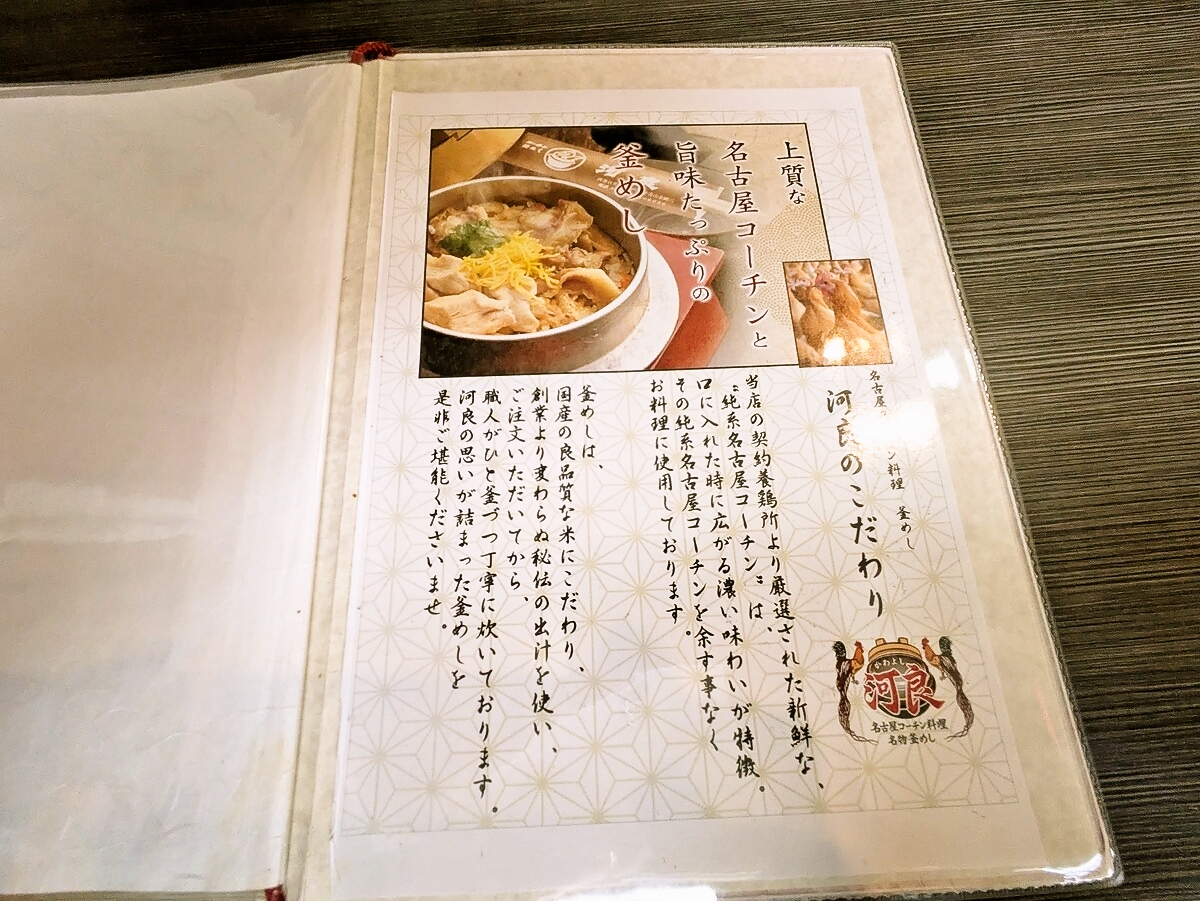 上質な
名古屋コーチンと
旨味たっぷりの
釜めし
名古屋
ン料理 釜めし
河良のこだわり
当店の契約養鶏所より厳選された新鮮な、
"純系名古屋コーチン"は、
口に入れた時に広がる濃い味わいが特徴。
その純系名古屋コーチンを余す事なく
お料理に使用しております。
釜めしは、
国産の良品質な米にこだわり、
創業より変わらぬ秘伝の出汁を使い、
ご注文いただいてから、
職人がひと釜づつ丁寧に炊いております。
河良の思いが詰まった釜めしを
是非ご堪能くださいませ。
かわよし
河良
名古屋コーチン料理
名物釜めし